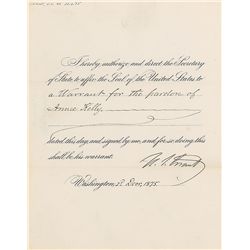 I hereby authorize and direct the Secretary
of State, to affix the Seal of the United States to
a Warrant for the pardon of
Annie Kelly
dated this day, and signed by me, and for so doing this
shall be his warrant.
U. S. Grant
Washington, Decr. 1875